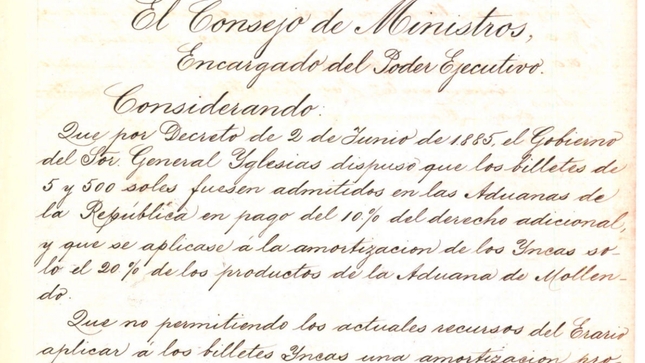 El Consejo de Ministros,
Encargado del Poder Ejecutivo.
Considerando:
Que por Decreto de 2 de Junio de 1885, el Gobierno
del Sor. General Yglesias dispuso que los billetes de
5 y 500 soles fuesen admitidos en las Aduanas de
la República en pago del 10% del derecho adicional,
y que se aplicase á la amortizacion de los Yncas so-
lo el 20% de los productos de la Aduana de Mollen-
do.
Que no permitiendo los actuales recursos del Erario
aplicar á los billetes Yncas una amortizacion pro-